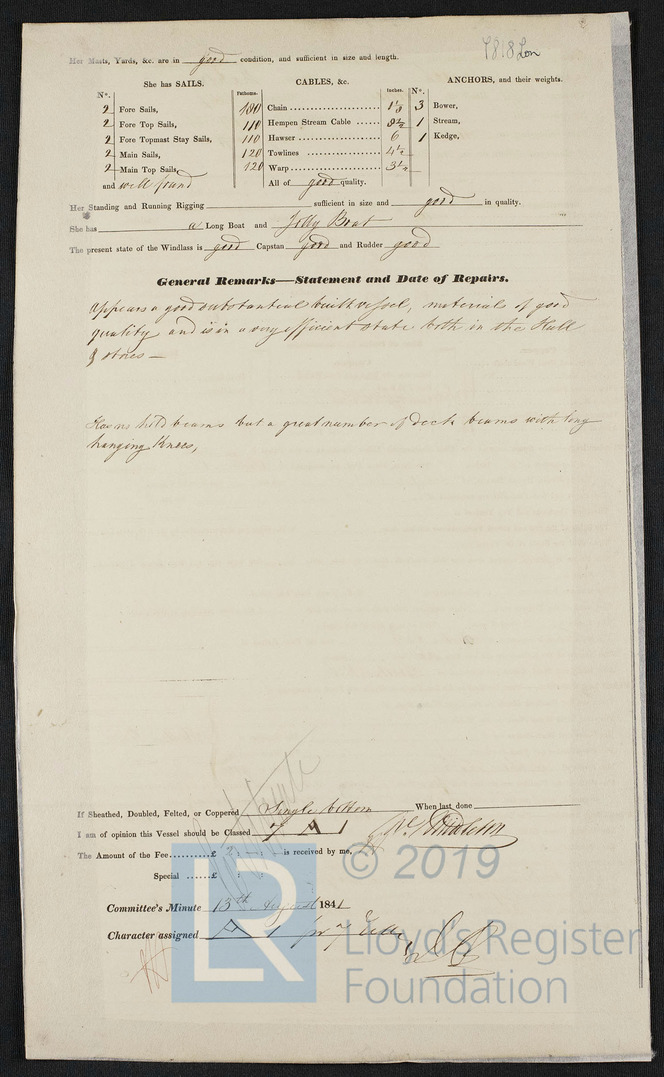 7818 Lon
Her Masts, Yards, &c. are in good condition, and sufficient in size and length.
She has SAILS.
CABLES, &c.
ANCHORS, and their weights.
N°.
Fathoms.
Inches.
N°.
2 Fore Sails,
180 Chain 1 1/8
3 Bower,
2 Fore Top Sails,
110 Hempen Stream Cable 8 1/2
1 Stream,
2 Fore Topmast Stay Sails,
110 Hawser 6
1 Kedge,
2 Main Sails,
120 Towlines 4 1/2
2 Main Top Sails,
120 Warp 3 1/2
and well found
All of good quality.
Her Standing and Running Rigging sufficient in size and good in quality.
She has a Long Boat and Jolly Boat
The present state of the Windlass is good Capstan good and Rudder good
General Remarks—Statement and Date of Repairs.
Appears a good substantial built vessel, material of good
quality and is in a very efficient state both in the Hull
& stores —
Has no hold beams but a great number of deck beams with long
hanging Knees,
If Sheathed, Doubled, Felted, or Coppered Single bottom When last done
I am of opinion this Vessel should be Classed 7 A 1
The Amount of the Fee £ 2 : : is received by me,
Special £ : :
Committee's Minute 13th August 1841
Character assigned A 1 for 7
© 2019
LR
Lloyd's Register
Foundation